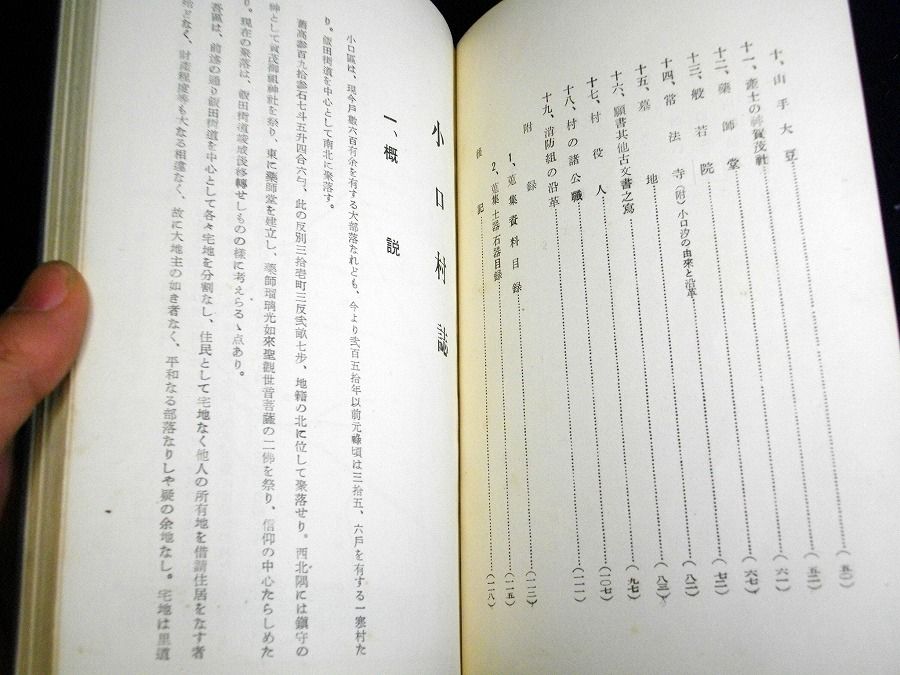 十、山手大豆………(五〇)
十一、產土の神賀茂社………(五二)
十二、藥師堂………(六一)
十三、般若院………(六七)
十四、常法寺(附)小口汐の由來と沿革………(七二)
十五、墓地………(八二)
十六、願書其他古文書之寫………(八三)
十七、村役人………(九七)
十八、村の諸公職………(一〇七)
十九、消防組の沿革………(一一一)
附錄
1、蒐集資料目錄………(一一三)
2、蒐集土器石器目錄………(一一五)
後記………(一一八)
小口村誌
一、概說
小口區は、現今戶數六百有余を有する大部落なれども、今より弐百五拾年以前元祿頃は三拾五、六戶を有する一寒村た
り。飯田街道を中心として南北に聚落す。
舊高参百九拾参石七斗五升四合六勺、此の反別三拾壱町三反弐畝七步、地籍の北に位して聚落せり。西北隅には鎮守の
神として賀茂御祖神社を祭り、東に藥師堂を建立し、藥師瑠璃光如來聖觀世音菩薩の二佛を祭り、信仰の中心たらしめた
り。現在の聚落は、飯田街道竣成後移轉せしものの様に考えらるゝ点あり。
吾區は、前述の通り飯田街道を中心として各々宅地を分割なし、住民として宅地なく他人の所有地を借請住居をなす者
殆どなく、財產程度等も大なる相違なく、故に大地主の如き者なく、平和なる部落なりしや疑の余地なし。宅地は里道